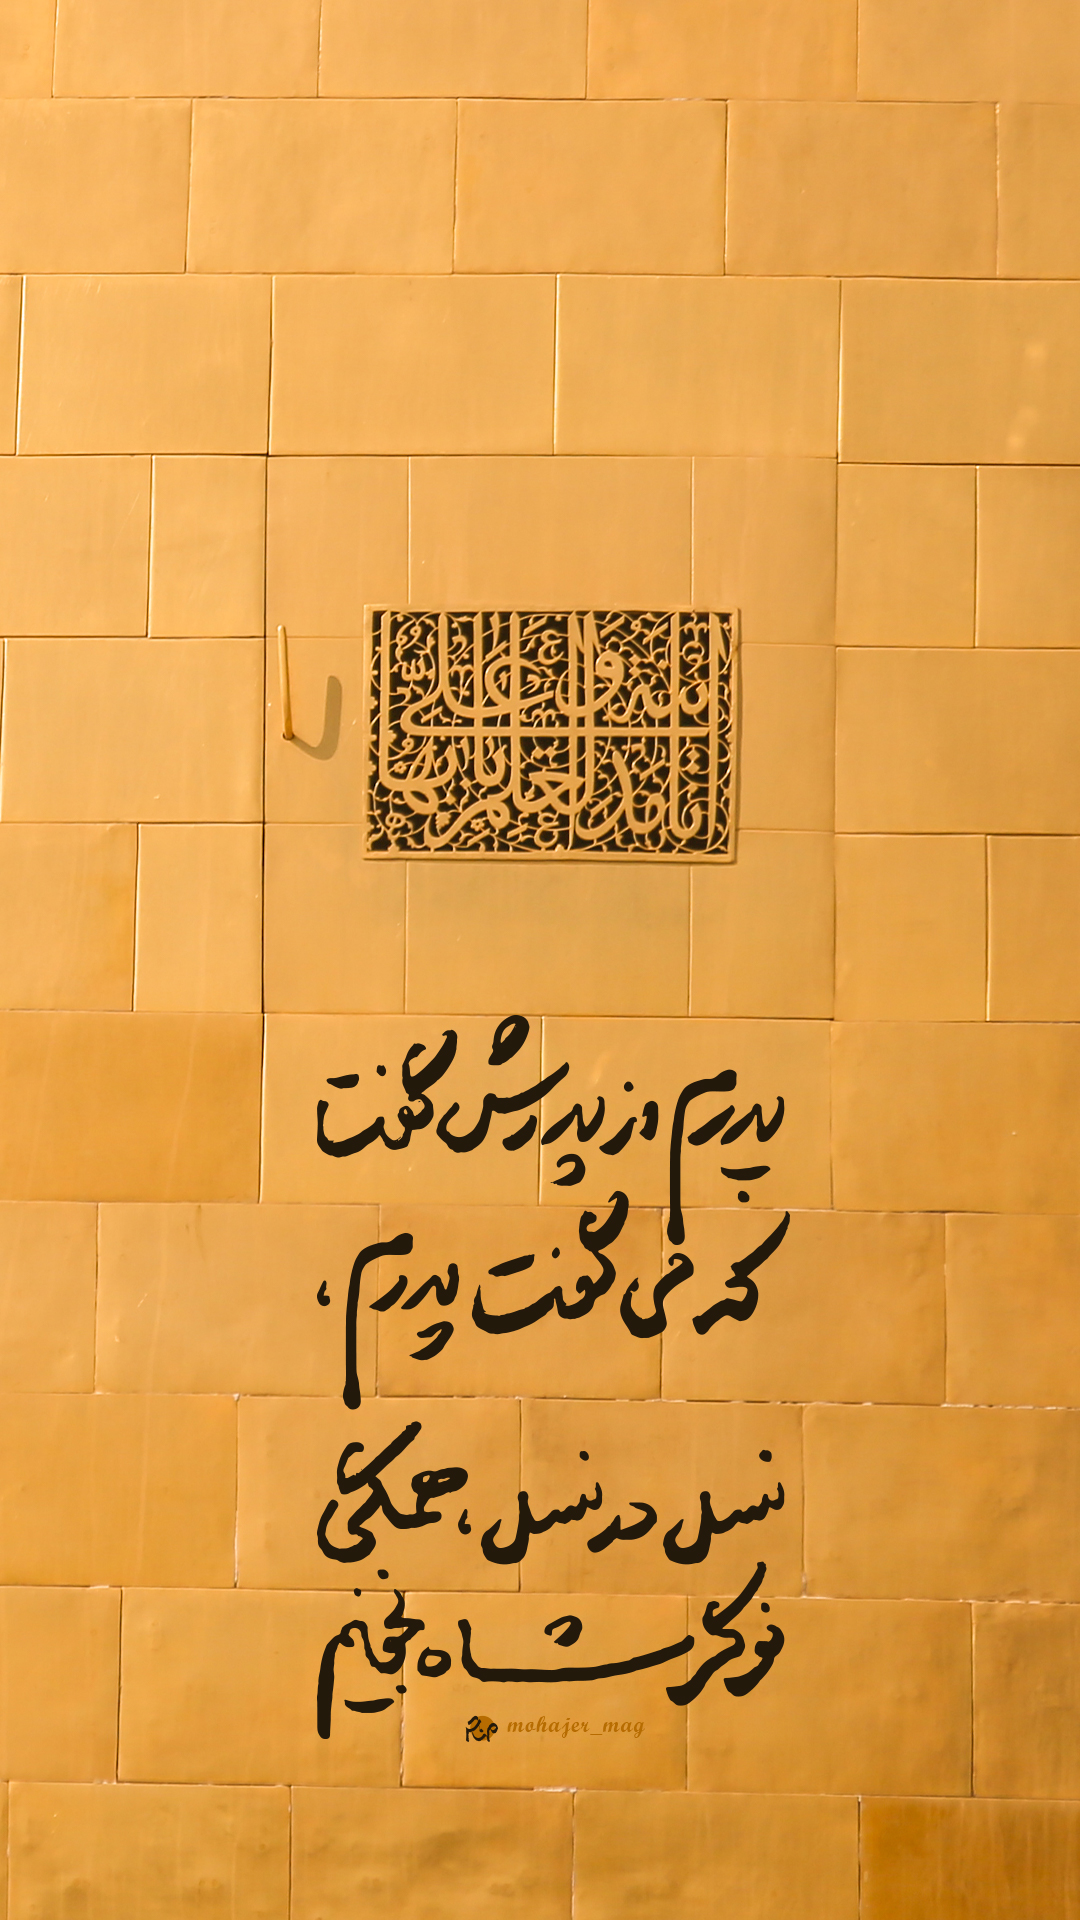 انا مدینة العلم
و علی بابها
پدرم وز پدرش گفت
که می گفت پدرم،
نسل در نسل، همگی
نوکر شاه نجفیم
mohajer_mag